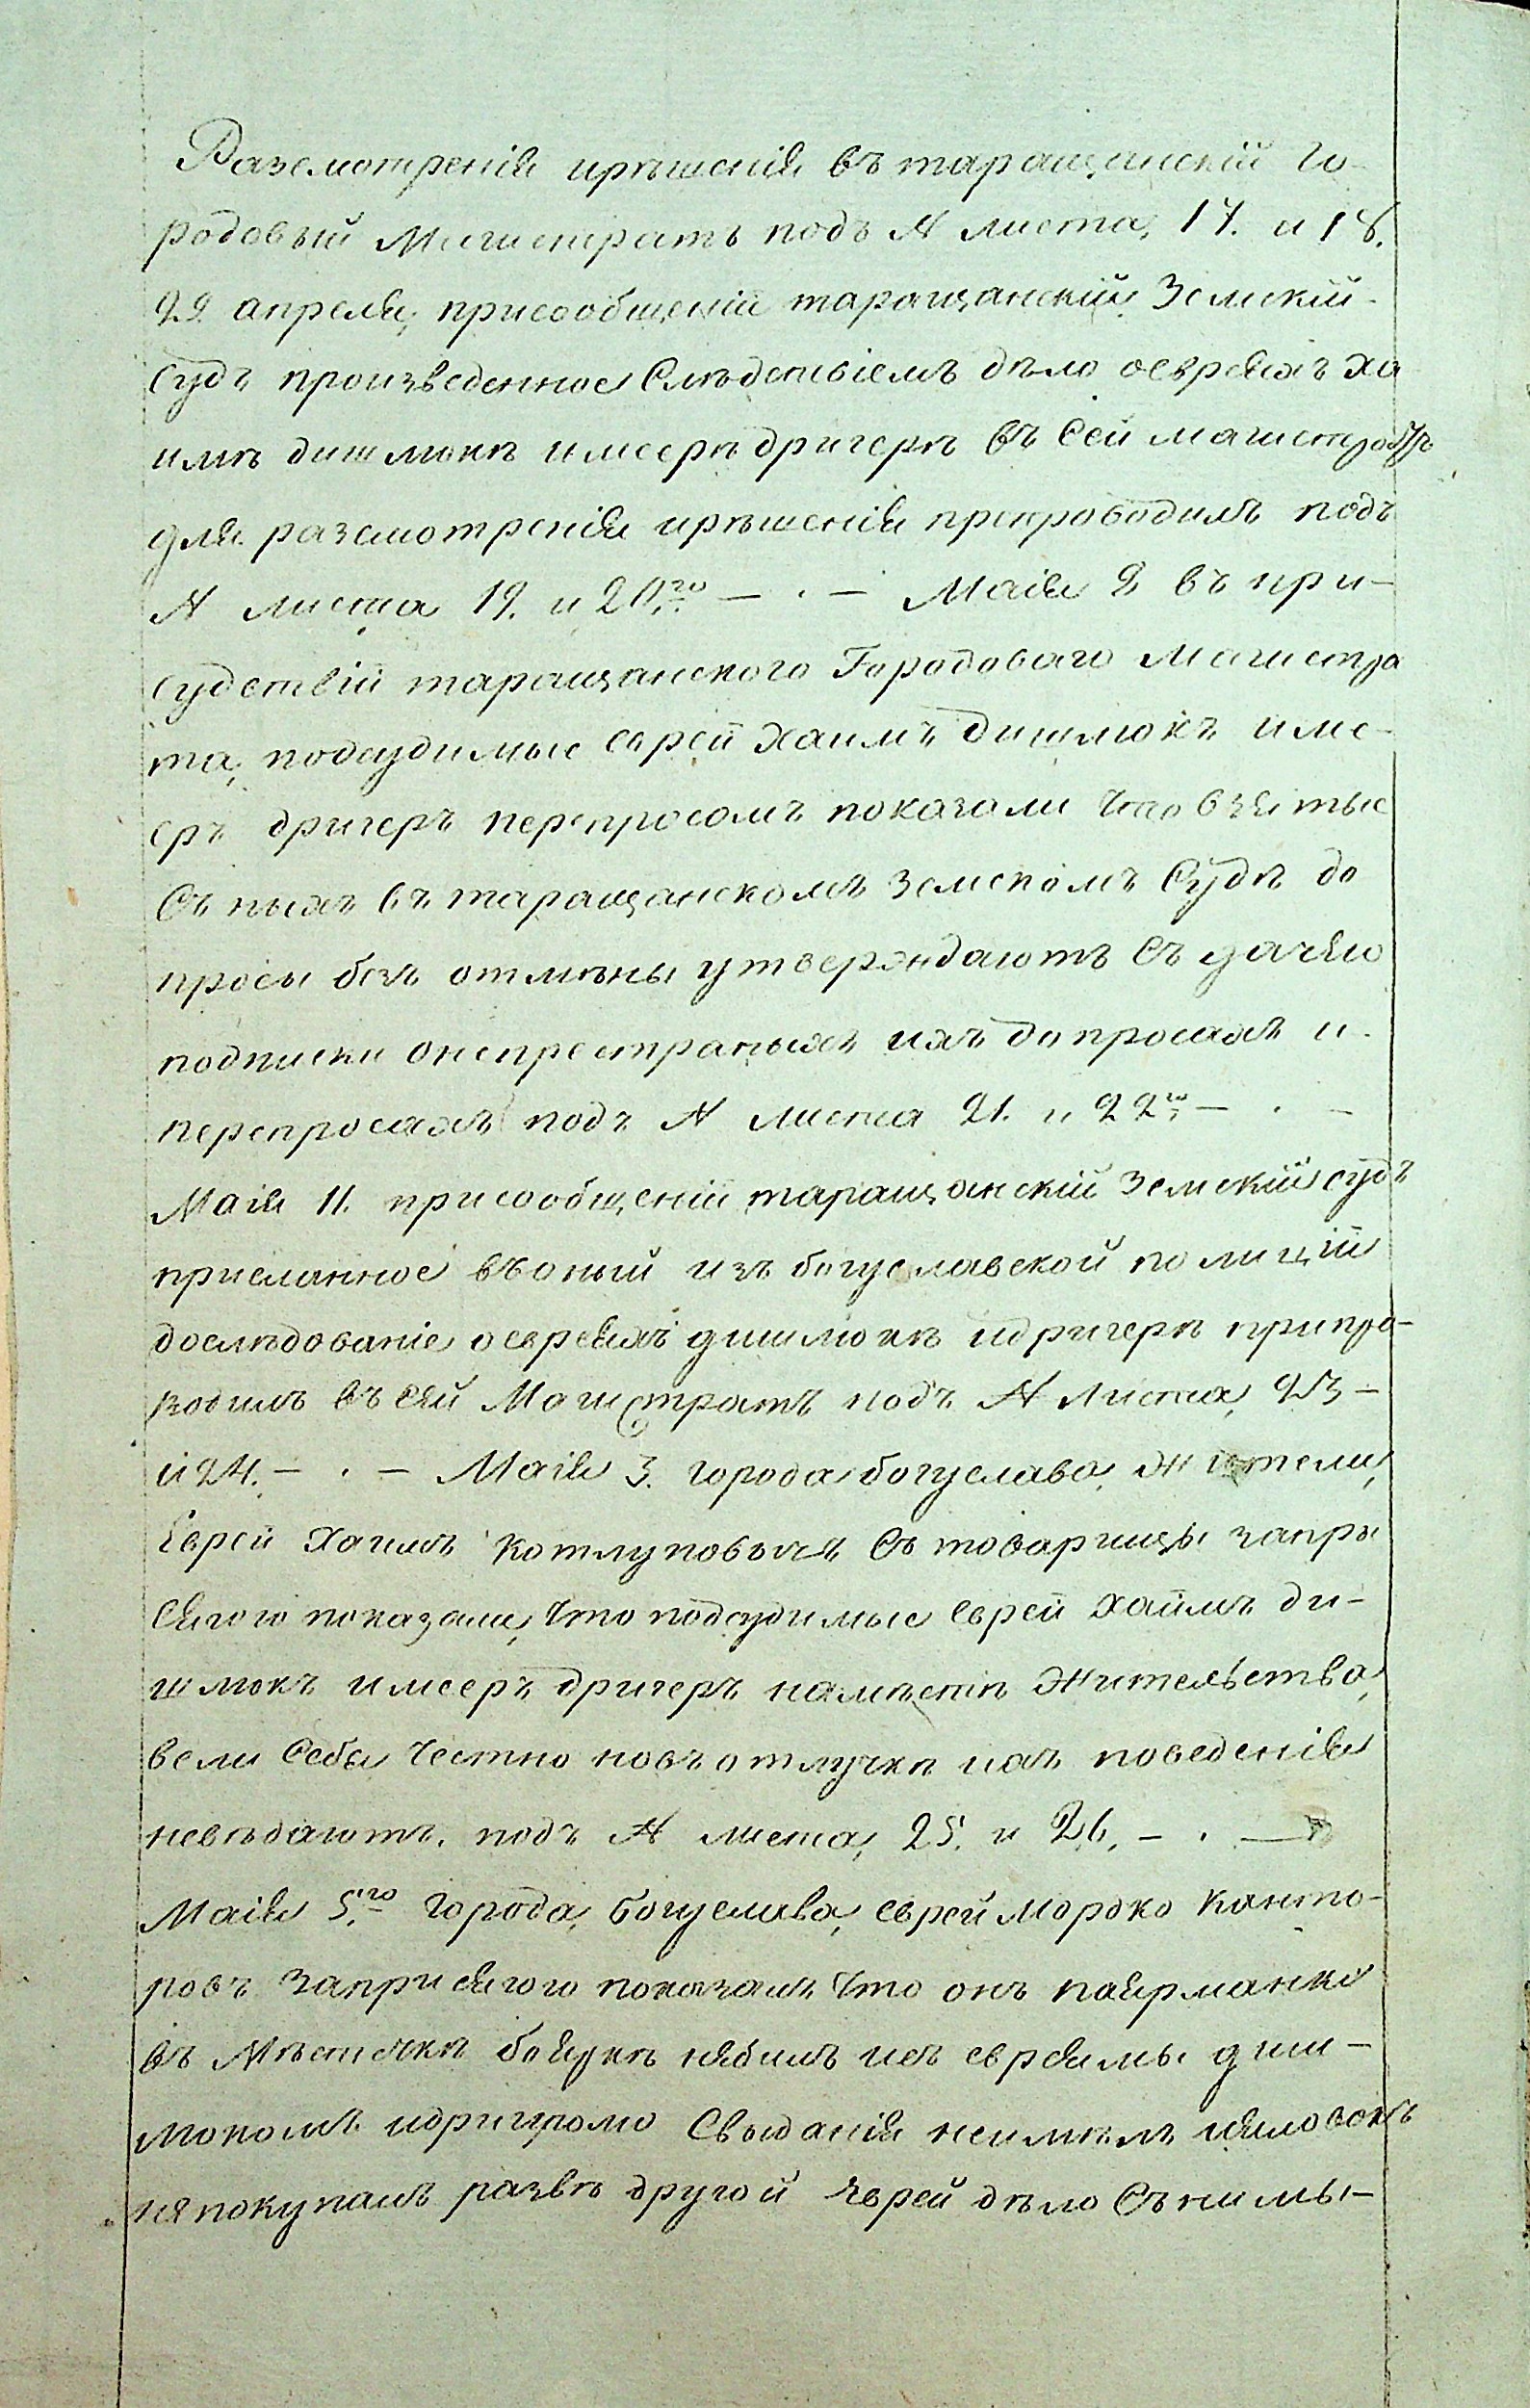 Разсмотренія ирѣшенія въ таращанскій го-
родовый Магистратъ подъ № листа, 17. и 18.
22 апреля, присообщеніи таращанскій Земскій
Судъ произведенное Слѣдствіемъ дѣло оевреяхъ Ха
имѣ дишлюкѣ имеерѣ дригерѣ въ Сей магистратъ
для разсмотренія ирѣшенія препроводилъ подъ
№ листа 19. и 20.го — · — Маія 2 въ при-
судствіи таращанского Городоваго Магистра
та, подсудимые еврей Хаимъ дишлюкъ име-
еръ дригеръ перепросомъ показали что взятые
Съ ныхъ въ таращанскомъ Земскомъ Судѣ до
просы безъ отмѣны утверждаютъ Съ дачею
подписки онепрестраныхъ ихъ допросахъ и
перепросахъ подъ № листа 21. и 22го — · —
Маія 11. присообщеніи таращанскій Земскій судъ
присланное въоный изъ богуславской полиціи
дослѣдованіе оевреяхъ дишлюкѣ идригерѣ припро-
водилъ въ сей Магистратъ подъ № Листа, 23 —
и 24. — · — Маія 3. города богуслава, жители,
Еврей Хаимъ Котлуповычъ Съ товарищы запры
Сягого показали, что подсудимые еврей Хаймъ ди-
шлюкъ имееръ дригеръ намѣстѣ Жительства,
вели Себя Честно новъотлучкѣ ихъ поведенія
невѣдаютъ. подъ № листа, 25. и 26. — · —
Маія 5.го города, богуслава, еврей мордкоКанто-
ровъ Заприсягого показалъ что онъ наярманкѣ
въ Мѣстечкѣ бояркѣ небилъ исъ евреямы диш-
люкомъ идригеромъ Свыданія неимѣлъ
непокупалъ развѣ другой Еврей дѣло Сънимы —